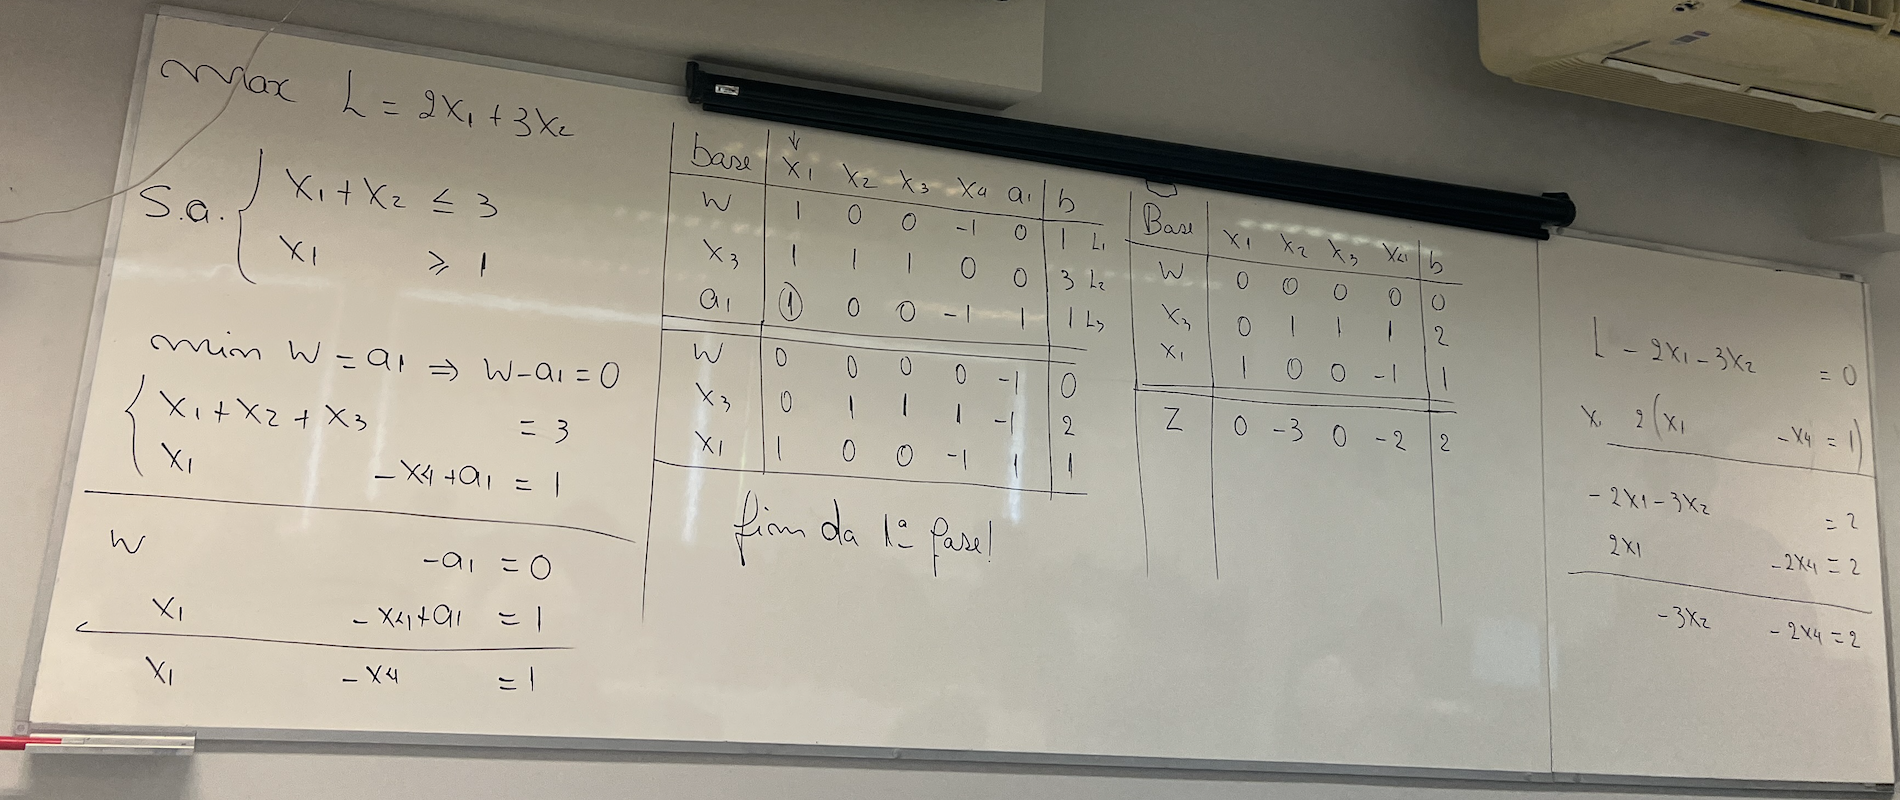 max L = 2x₁ + 3x₂
S.a. { x₁ + x₂ ≤ 3
x₁ ≥ 1
min W = a₁ ⇒ W - a₁ = 0
{ x₁ + x₂ + x₃ = 3
x₁ - x₄ + a₁ = 1
W - a₁ = 0
x₁ - x₄ + a₁ = 1
x₁ - x₄ = 1
base x₁ x₂ x₃ x₄ a₁ b
W 1 0 0 -1 0 1 L₁
x₃ 1 1 1 0 0 3 L₂
a₁ 1 0 0 -1 1 1 L₃
W 0 0 0 0 -1 0
x₃ 0 1 1 1 -1 2
x₁ 1 0 0 -1 1 1
fim da 1ª fase!
Base x₁ x₂ x₃ x₄ b
W 0 0 0 0 0
x₃ 0 1 1 1 2
x₁ 1 0 0 -1 1
Z 0 -3 0 -2 2
L - 2x₁ - 3x₂ = 0
x₁ 2(x₁ - x₄ = 1)
- 2x₁ - 3x₂ = 2
2x₁ - 2x₄ = 2
- 3x₂ - 2x₄ = 2